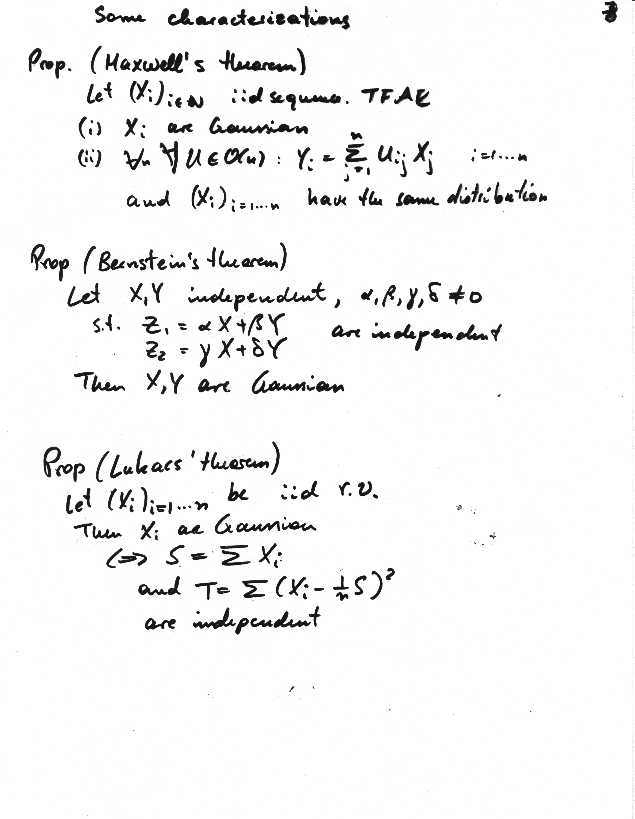 Some characterizations
Prop. (Maxwell's theorem)
Let (Xi)i∈ℕ iid sequence. TFAE
(i) Xi are Gaussian
(ii) ∀n ∀ U ∈ O(n) : Yi = Σ_{j=1}^{n} Uij Xj i=1...n
and (Xi)i=1...n have the same distribution
Prop (Bernstein's theorem)
Let X,Y independent, α,β,γ,δ ≠ 0
s.t. Z1 = αX+βY are independent
Z2 = γX+δY
Then X,Y are Gaussian
Prop (Lukacs' theorem)
Let (Xi)i=1...n be iid r.v.
Then Xi are Gaussian
⇔ S = Σ Xi
and T= Σ (Xi - 1/n S)²
are independent